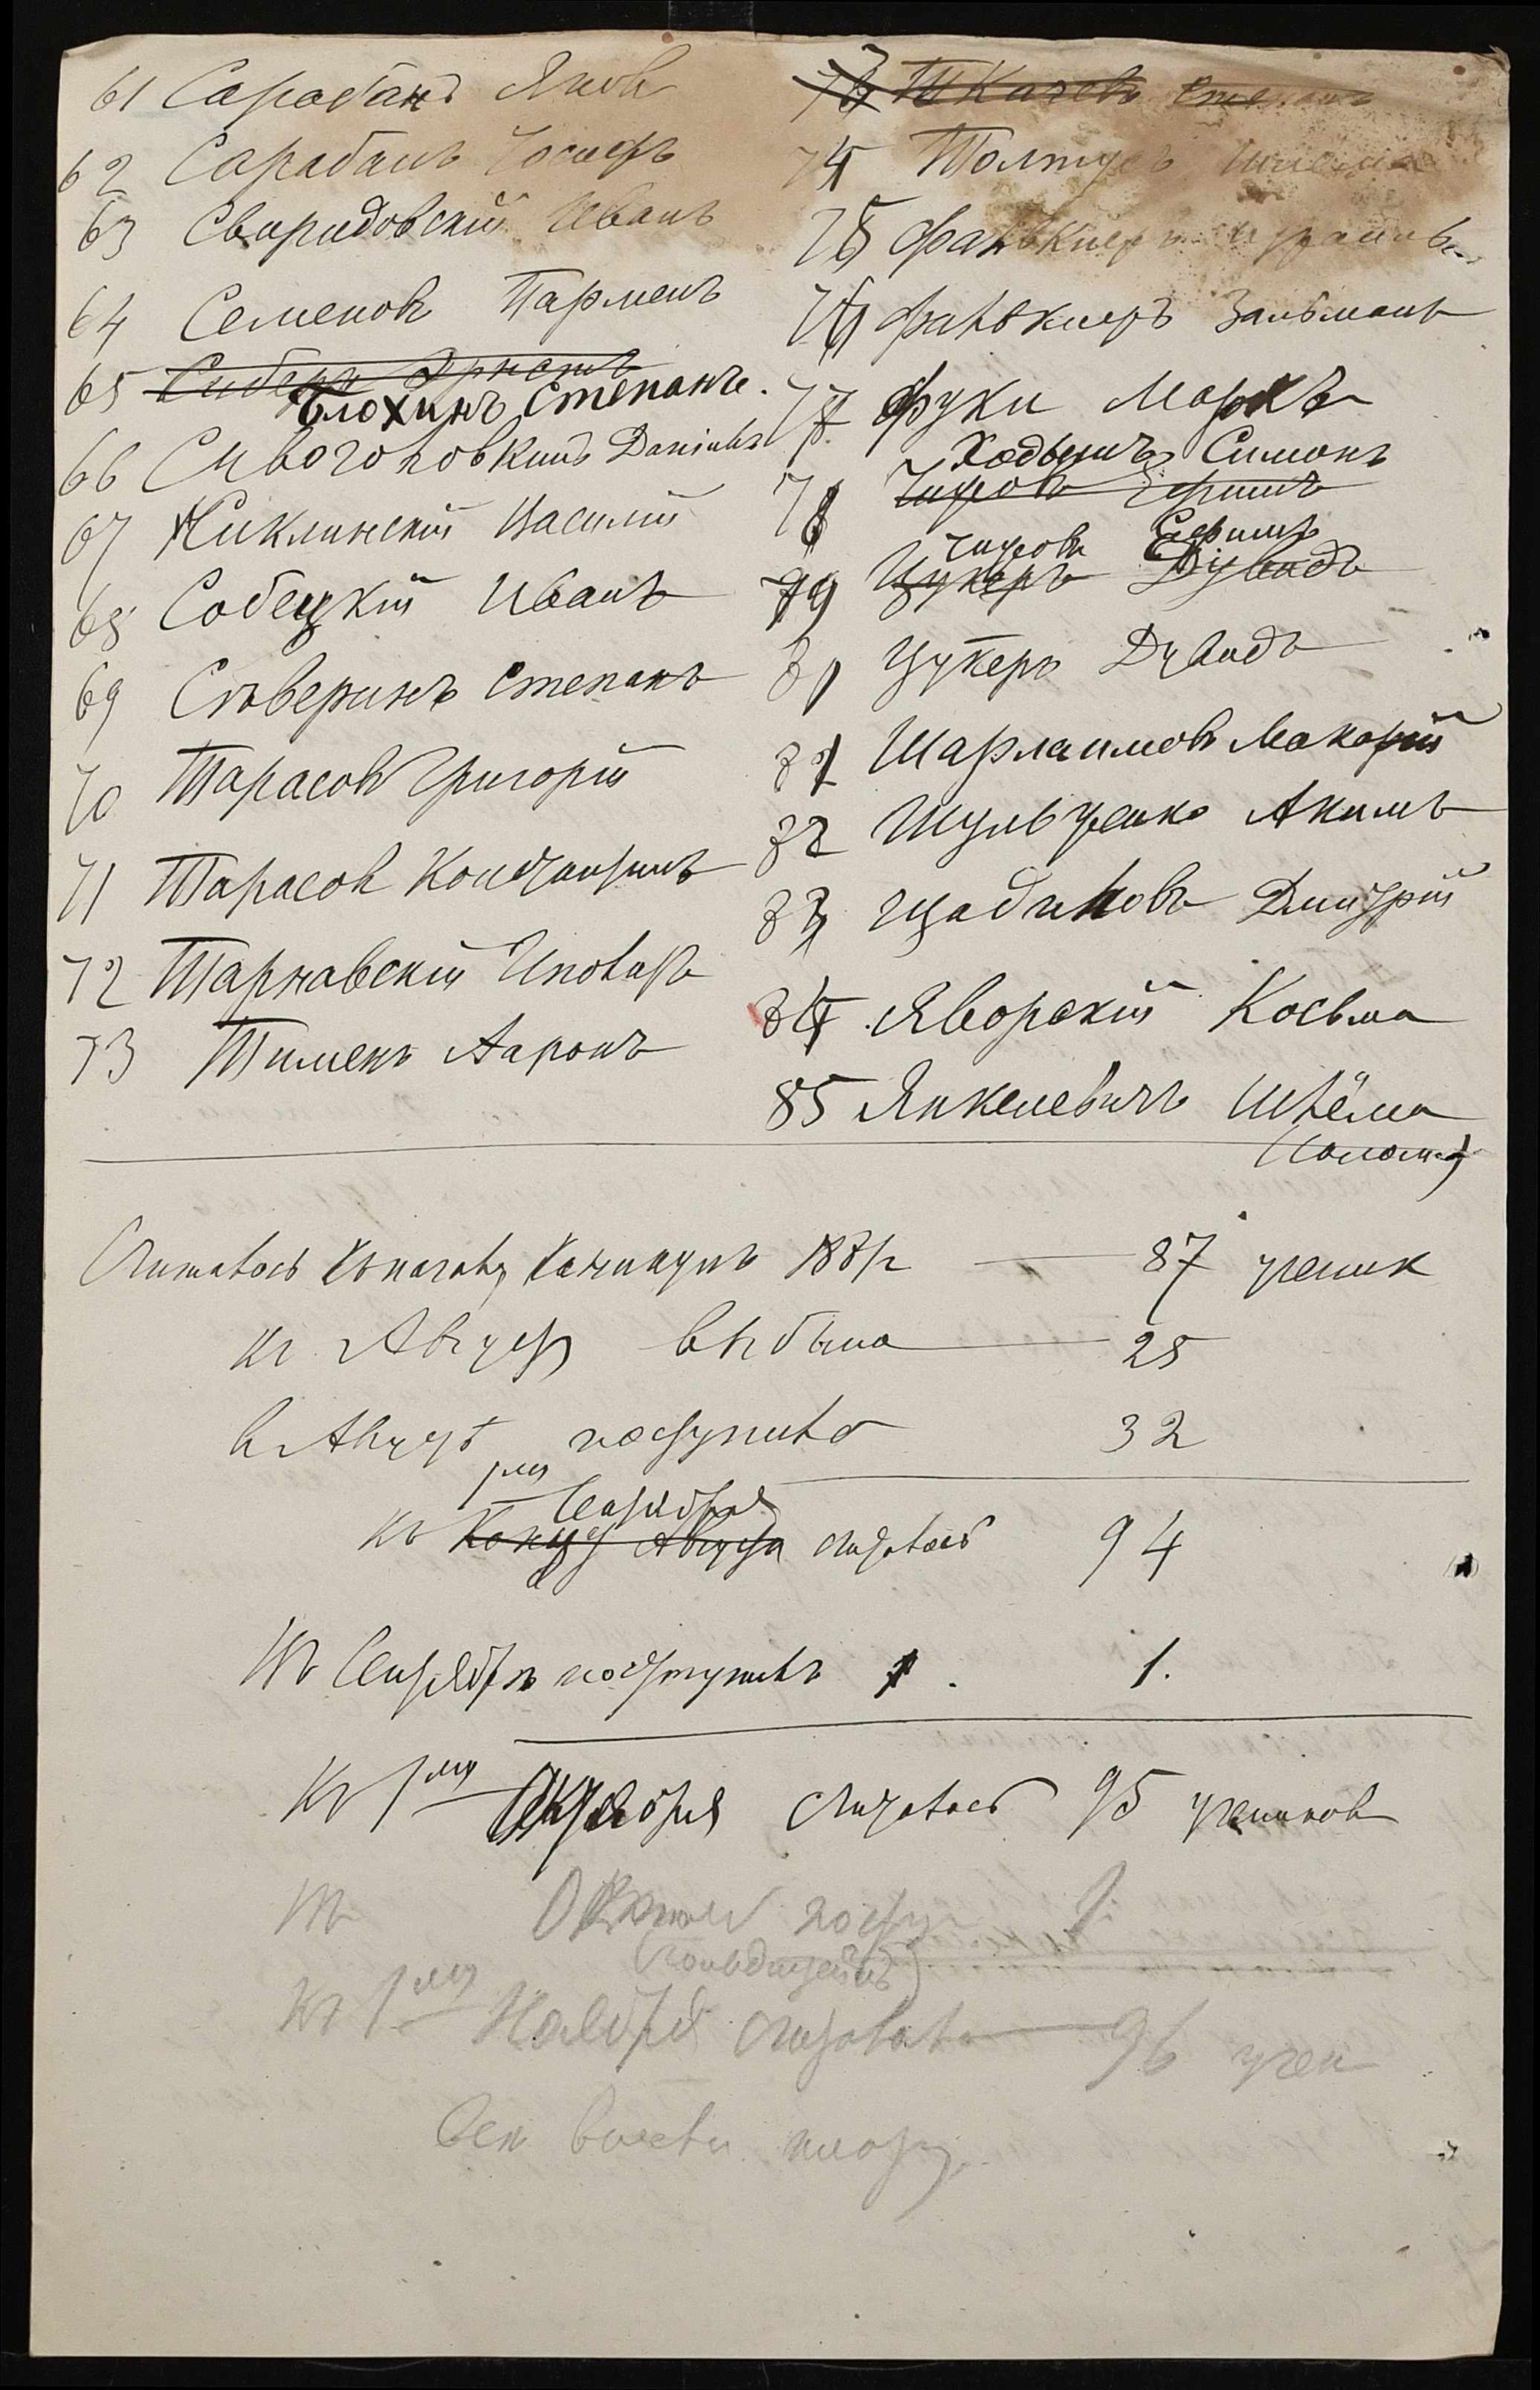 61 Сарабанъ Яковъ
62 Сарабанъ Іосифъ
63 Свиридовскій Иванъ
64 Семеновъ Парменъ
65 Сиберъ Эрнестъ
Блохинъ Степанъ.
66 Сивоголовкинъ Даніилъ
67 Сиклинскій Василій
68 Собецкій Иванъ
69 Сѣверинъ Степанъ
70 Тарасовъ Григорій
71 Тарасов Константинъ
72 Тарнавскій
73 Тименъ Ааронъ
Ткачевъ Степанъ
74 Толтусъ Шлема
75 Файвкперъ Израиль
76 Файвкперъ Зальманъ
77 Фуки Маркъ
Ходышъ Симонъ
78 Чировъ Ефимъ
Чировъ Ефимъ
79 Цукеръ Дувидъ
80 Цукеръ Дувидъ
81 Шарлаимовъ Макарій
82 Шульженко Акимъ
83 Щадиловъ Дмитрій
84 Яворскій Косьма
85 Янкелевичъ Шлёма
(Соломон)
Считалось къ началу каникулъ 188 г. 87 ученик
къ Августу выбыло 25
въ Августѣ поступило 32
1 го
Сентября
къ концу Августа считалось 94
Въ Сентябрѣ поступилъ 1. 1.
Къ 1 му Октября считалось 95 учениковъ
Въ Октябрѣ поступ 1
(Гольдштейнъ)
Къ 1 му Ноября считалось 96 учен